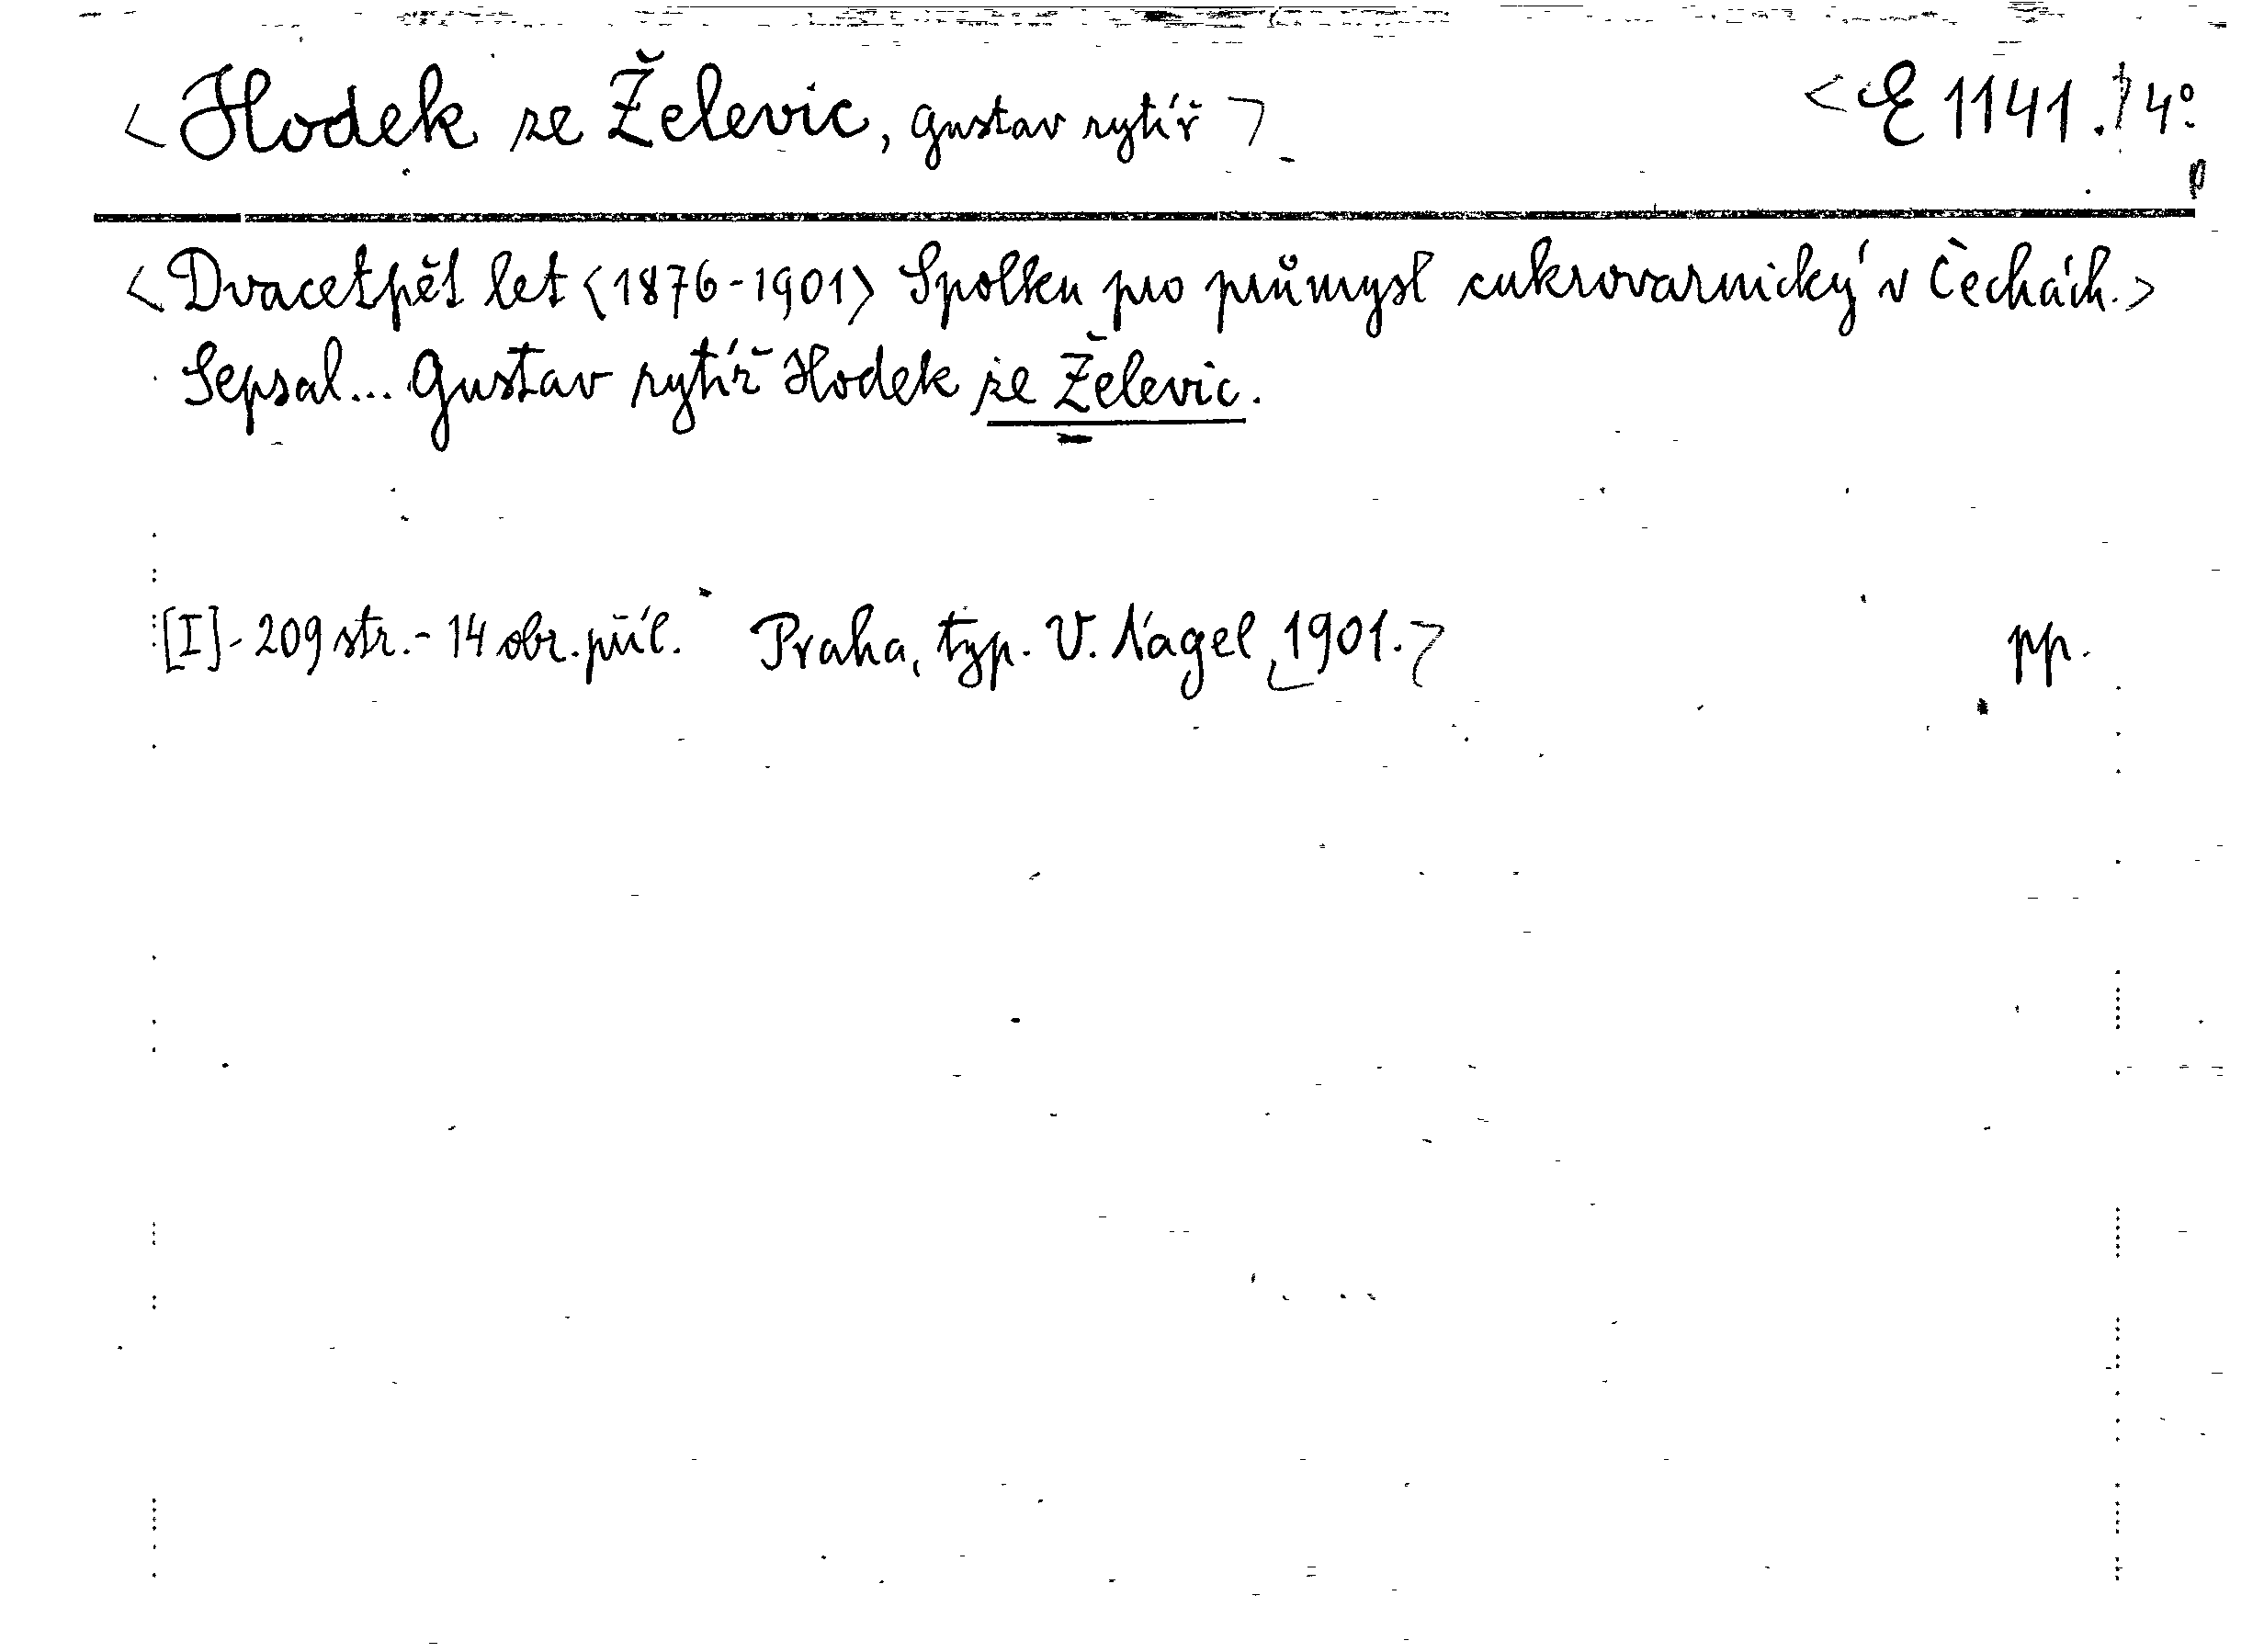 <Hodek ze Želevic, Gustav rytíř> <E 1141./4°
p
<Dvacetpět let <1876-1901> Spolku pro průmysl cukrovarnický v Čechách.>
Sepsal... Gustav rytíř Hodek ze Želevic.
[I]-209 str.-14 obr. příl. Praha, typ. V. Nagel, 1901.> pp.